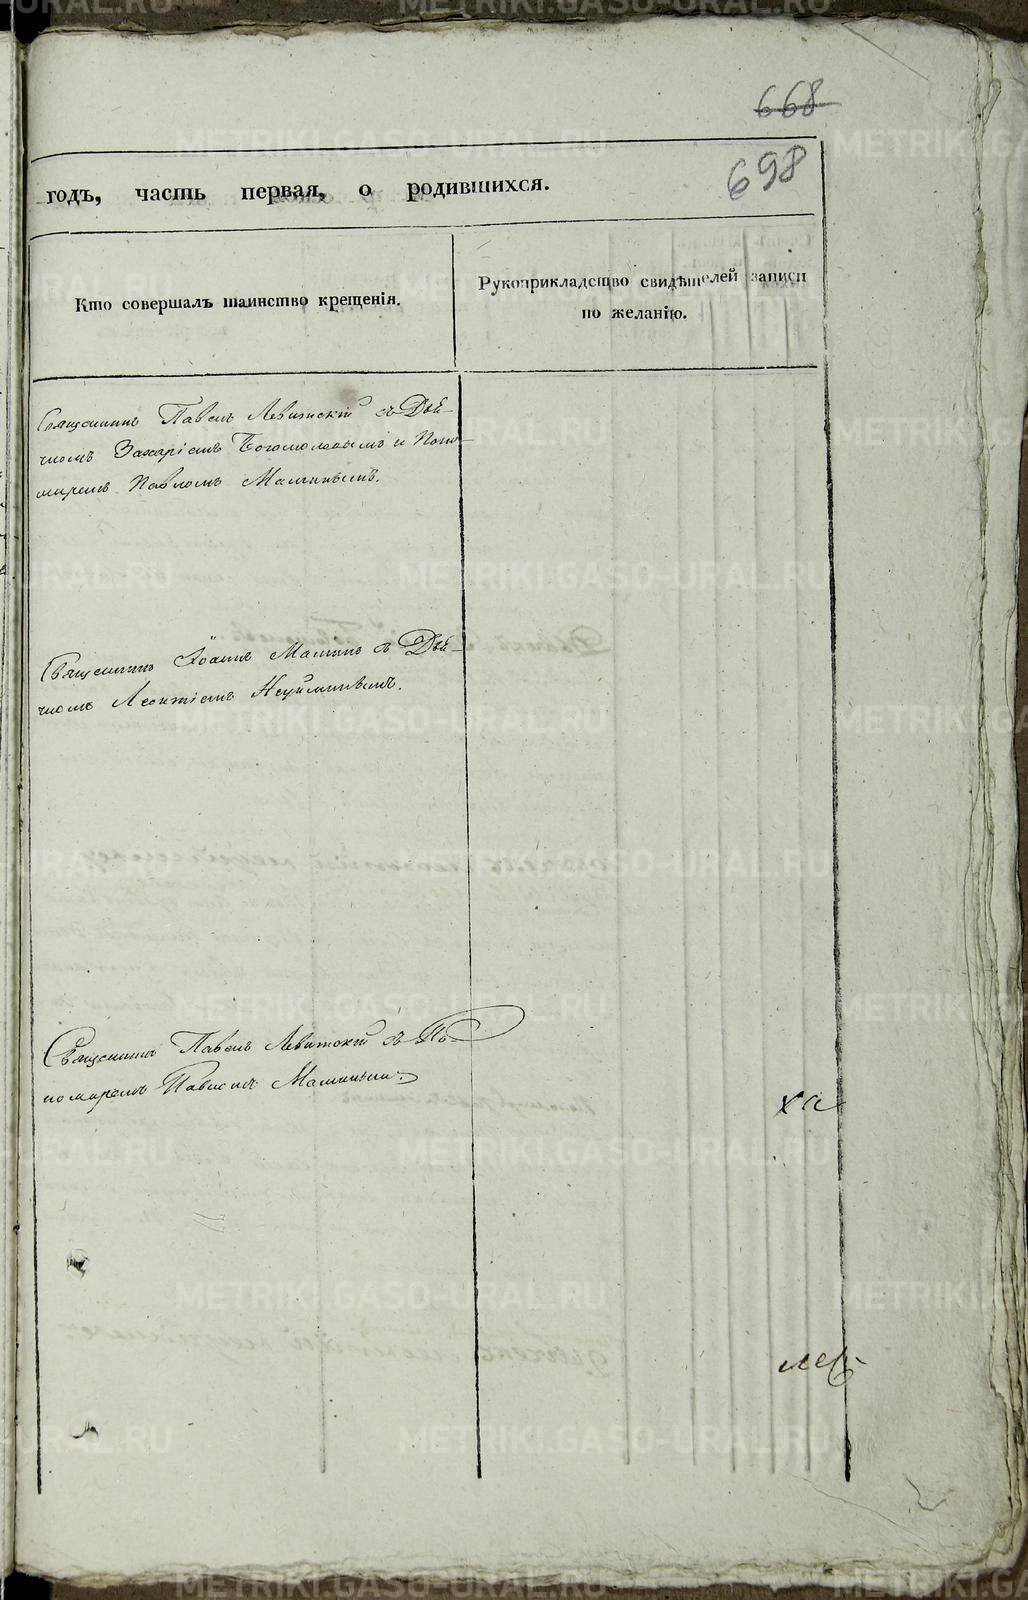 668
698
годъ, часть первая, о родившихся.
Кто совершалъ таинство крещенія.
Рукоприкладство свидѣтелей записи
по желанію.
Священникъ Павелъ Левитскій съ Дья-
комъ Захаріемъ Богомоловымъ и Поно-
маремъ Павломъ Маминымъ.
Священникъ Іоаннъ Маминъ съ Дья-
комъ Леонтіемъ
Священникъ Павелъ Левитскій съ По-
номаремъ Павломъ Маминым.
ха
лев
METRIKI.GASO-URAL.RU